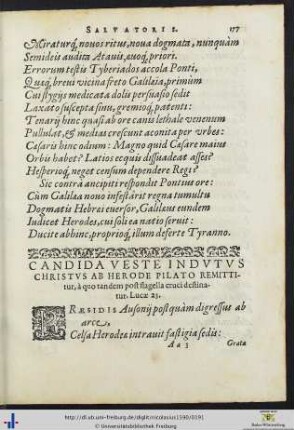 SALVATORIS. 177
Miraturq́, nouos ritus, noua dogmata, nunquàm
Semideis audita Atauis, auoq́, priori.
Errorum testis Tyberiados accola Ponti,
Quæq́, breui vicina freto Galilæia, primùm
Cui stygijs medicata dolis persuasio sedit
Laxato suscepta sinu, gremioq́, patenti:
Tenarij hinc quasi ab ore canis lethale venenum
Pullulat, & medias crescunt aconita per vrbes:
Cæsaris hinc odium: Magno quid Cæsare maius
Orbis habet? Latios ecquis dissuadeat asses?
Hesperioq́, neget censum dependere Regi?
Sic contrà ancipiti respondit Pontius ore:
Cùm Galilæa nouo infestârit regna tumultu
Dogmatis Hebræi euersor, Galilæus eundem
Iudicet Herodes, cui soli ea natio seruit:
Ducite abhinc, proprioq́, illum deferte Tyranno.
CANDIDA VESTE INDVTVS
CHRISTVS AB HERODE PILATO REMITTI-
tur, à quo tandem post flagella cruci destina-
tur. Lucæ 23.
PRÆSIDIS Ausonij postquàm digressus ab
arce,
Celsa Herodea intrauit fastigia sedis:
Aa 3 Grata
http://dl.ub.uni-freiburg.de/diglit/nicolausius1590/0191
© Universitätsbibliothek Freiburg